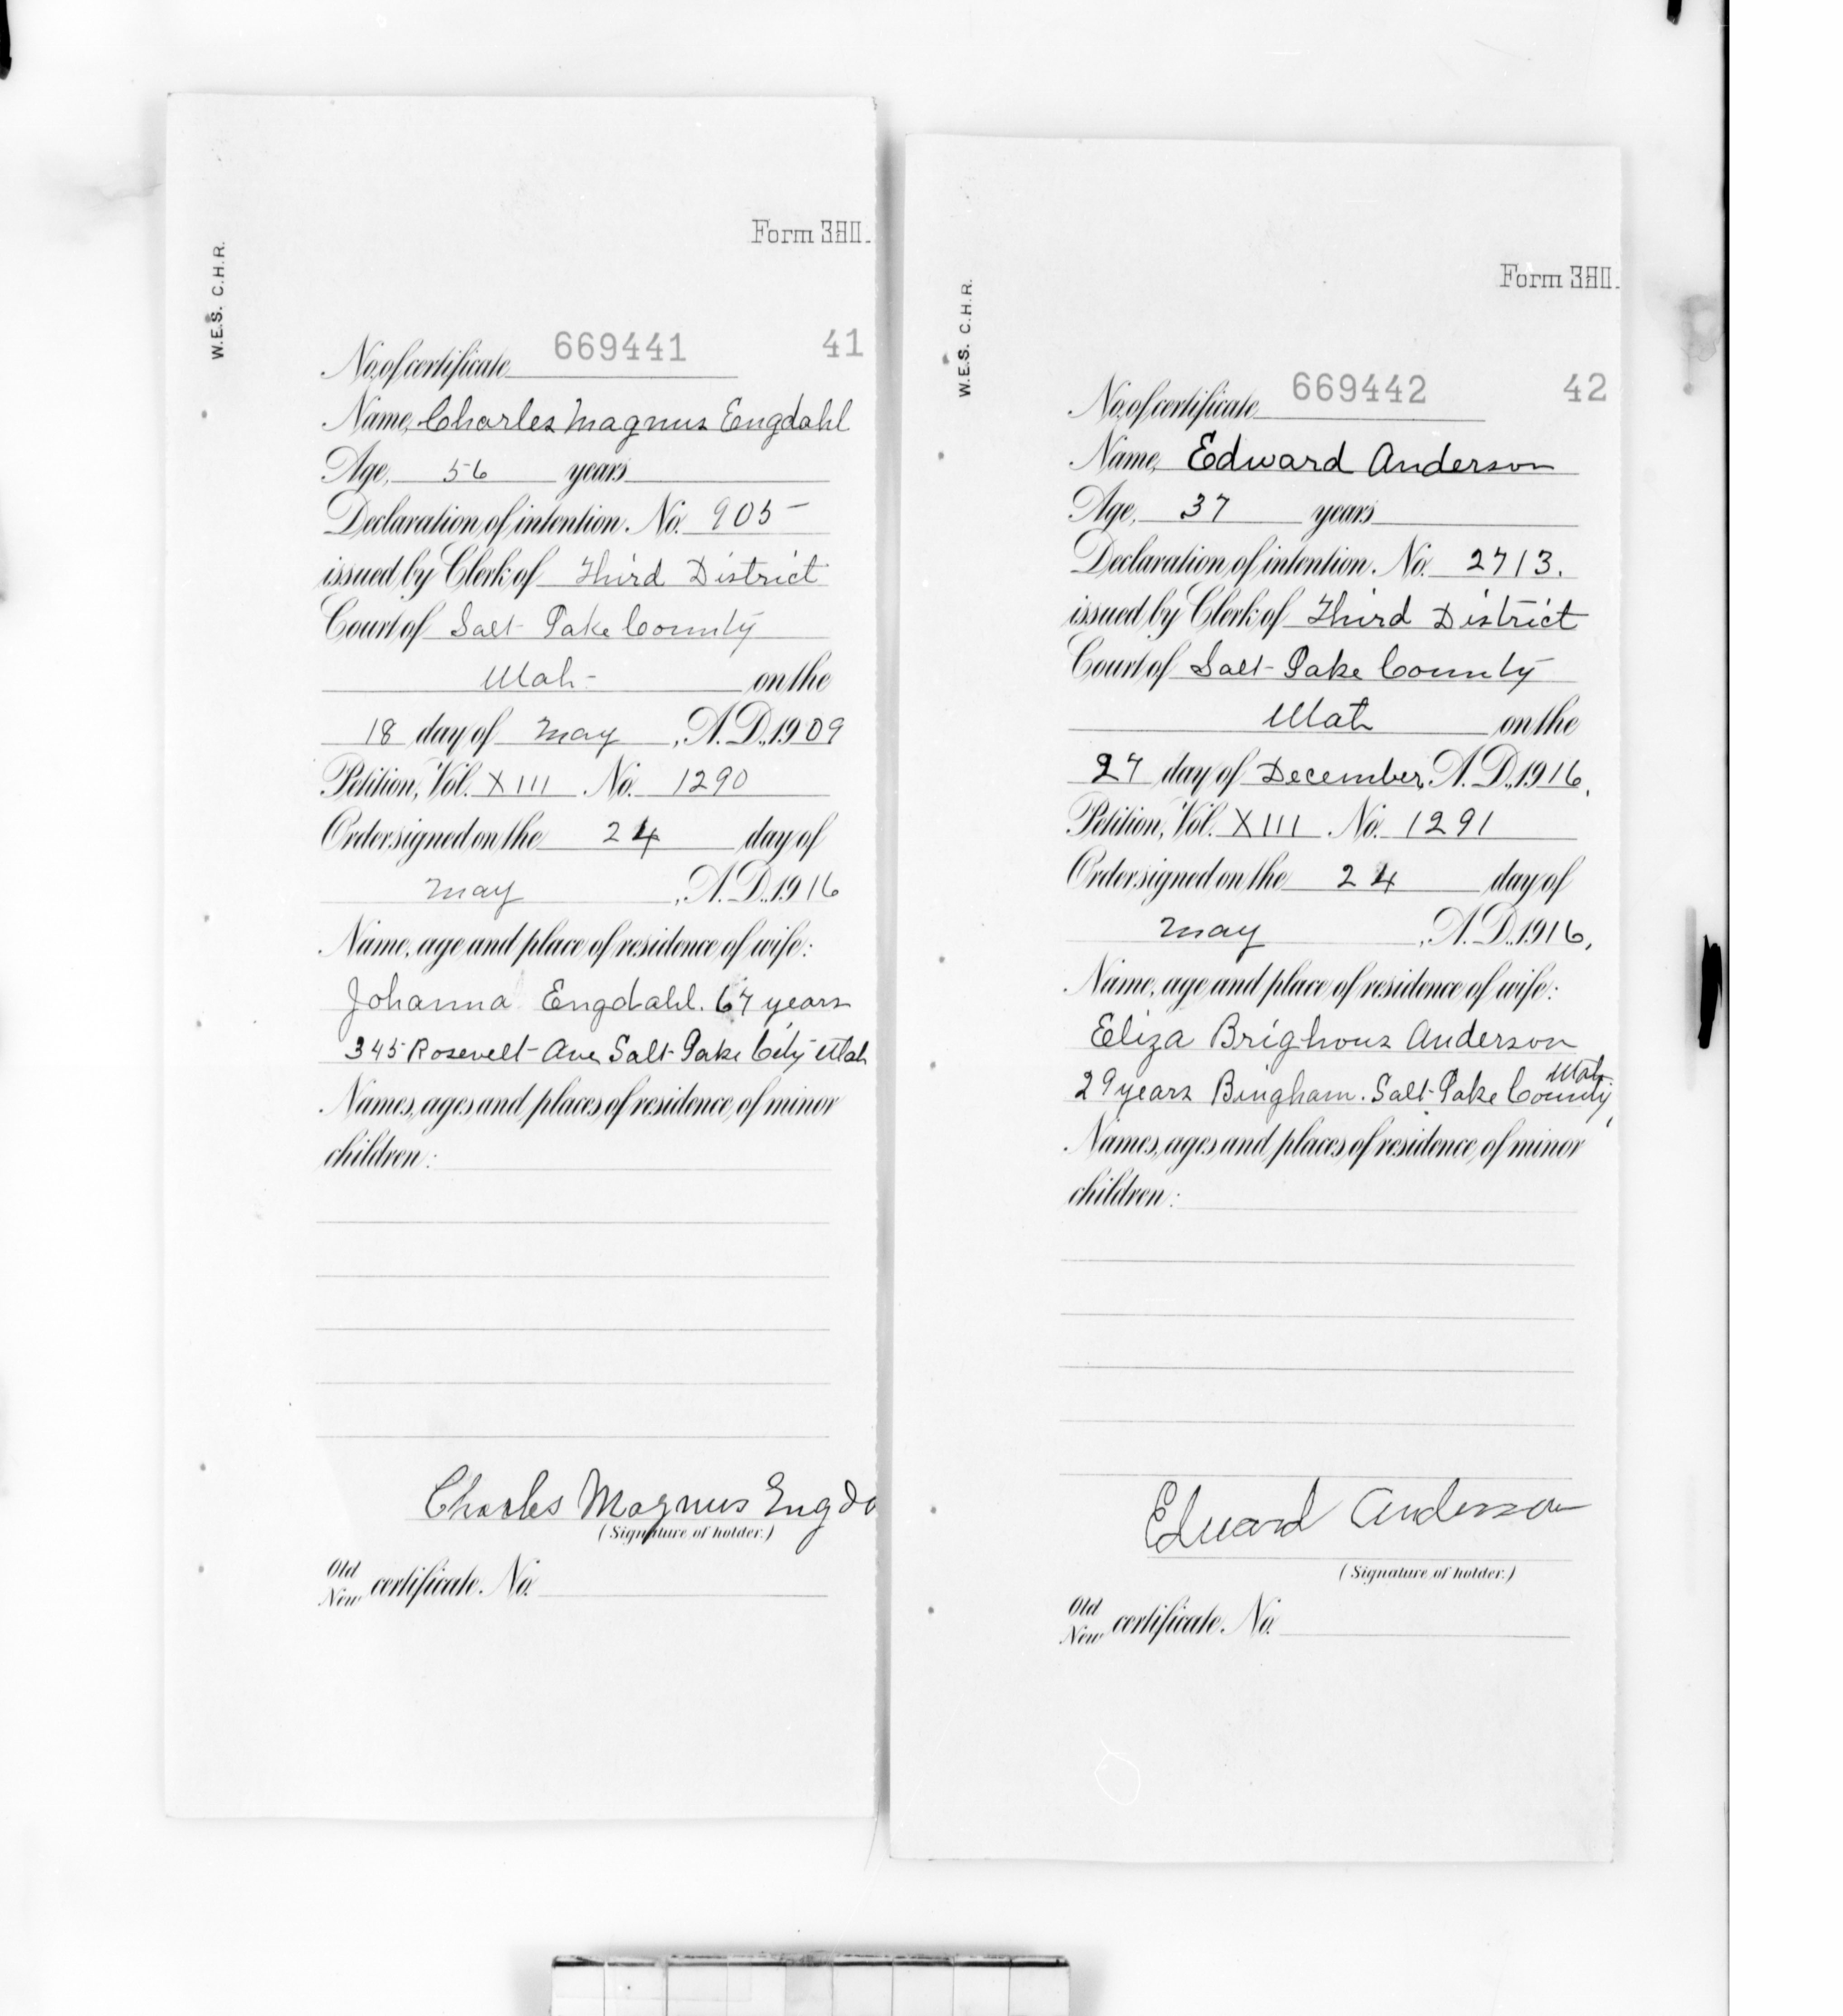 W.E.S. C.H.R.
Form 380.
No. of certificate 669441 41
Name, Charles Magnus Engdahl
Age, 56 years
Declaration of intention, No. 905
issued by Clerk of Third District
Court of Salt Lake County
Utah on the
18 day of May, A.D. 1909
Petition, Vol. XIII No. 1290
Order signed on the 24 day of
May, A.D. 1916
Name, age and place of residence of wife:
Johanna Engdahl. 67 years
345 Rosevelt Ave Salt Lake City Utah
Names, ages and places of residence of minor
children:
Charles Magnus Engda
(Signature of holder.)
Old
New certificate, No.
W.E.S. C.H.R.
Form 380.
No. of certificate 669442 42
Name, Edward Anderson
Age, 37 years
Declaration of intention, No. 2713.
issued by Clerk of Third District
Court of Salt Lake County
Utah on the
27 day of December, A.D. 1916.
Petition, Vol. XIII No. 1291
Order signed on the 24 day of
May, A.D. 1916,
Name, age and place of residence of wife:
Eliza Brighous Anderson
29 years Bingham. Salt Lake County, Utah
Names, ages and places of residence of minor
children:
Edward Anderson
(Signature of holder.)
Old
New certificate, No.